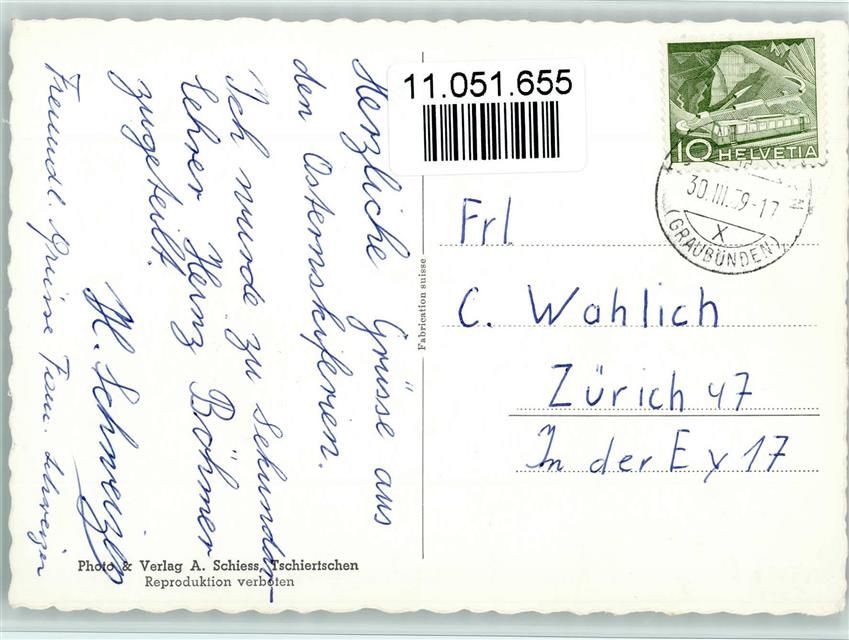 11.051.655
10 HELVETIA
30.III.59-17
X
(GRAUBÜNDEN)
Herzliche Grüsse aus
den Osternskiferien.
Ich wurde zu Sekundar-
lehrer Heinz Böhmer
zugeteilt.
H. Schweizer
Freundl. Grüsse Fam. Schweizer
Fabrication suisse
Frl
C. Wahlich
Zürich 47
In der Ey 17
Photo & Verlag A. Schiess, Tschiertschen
Reproduktion verboten